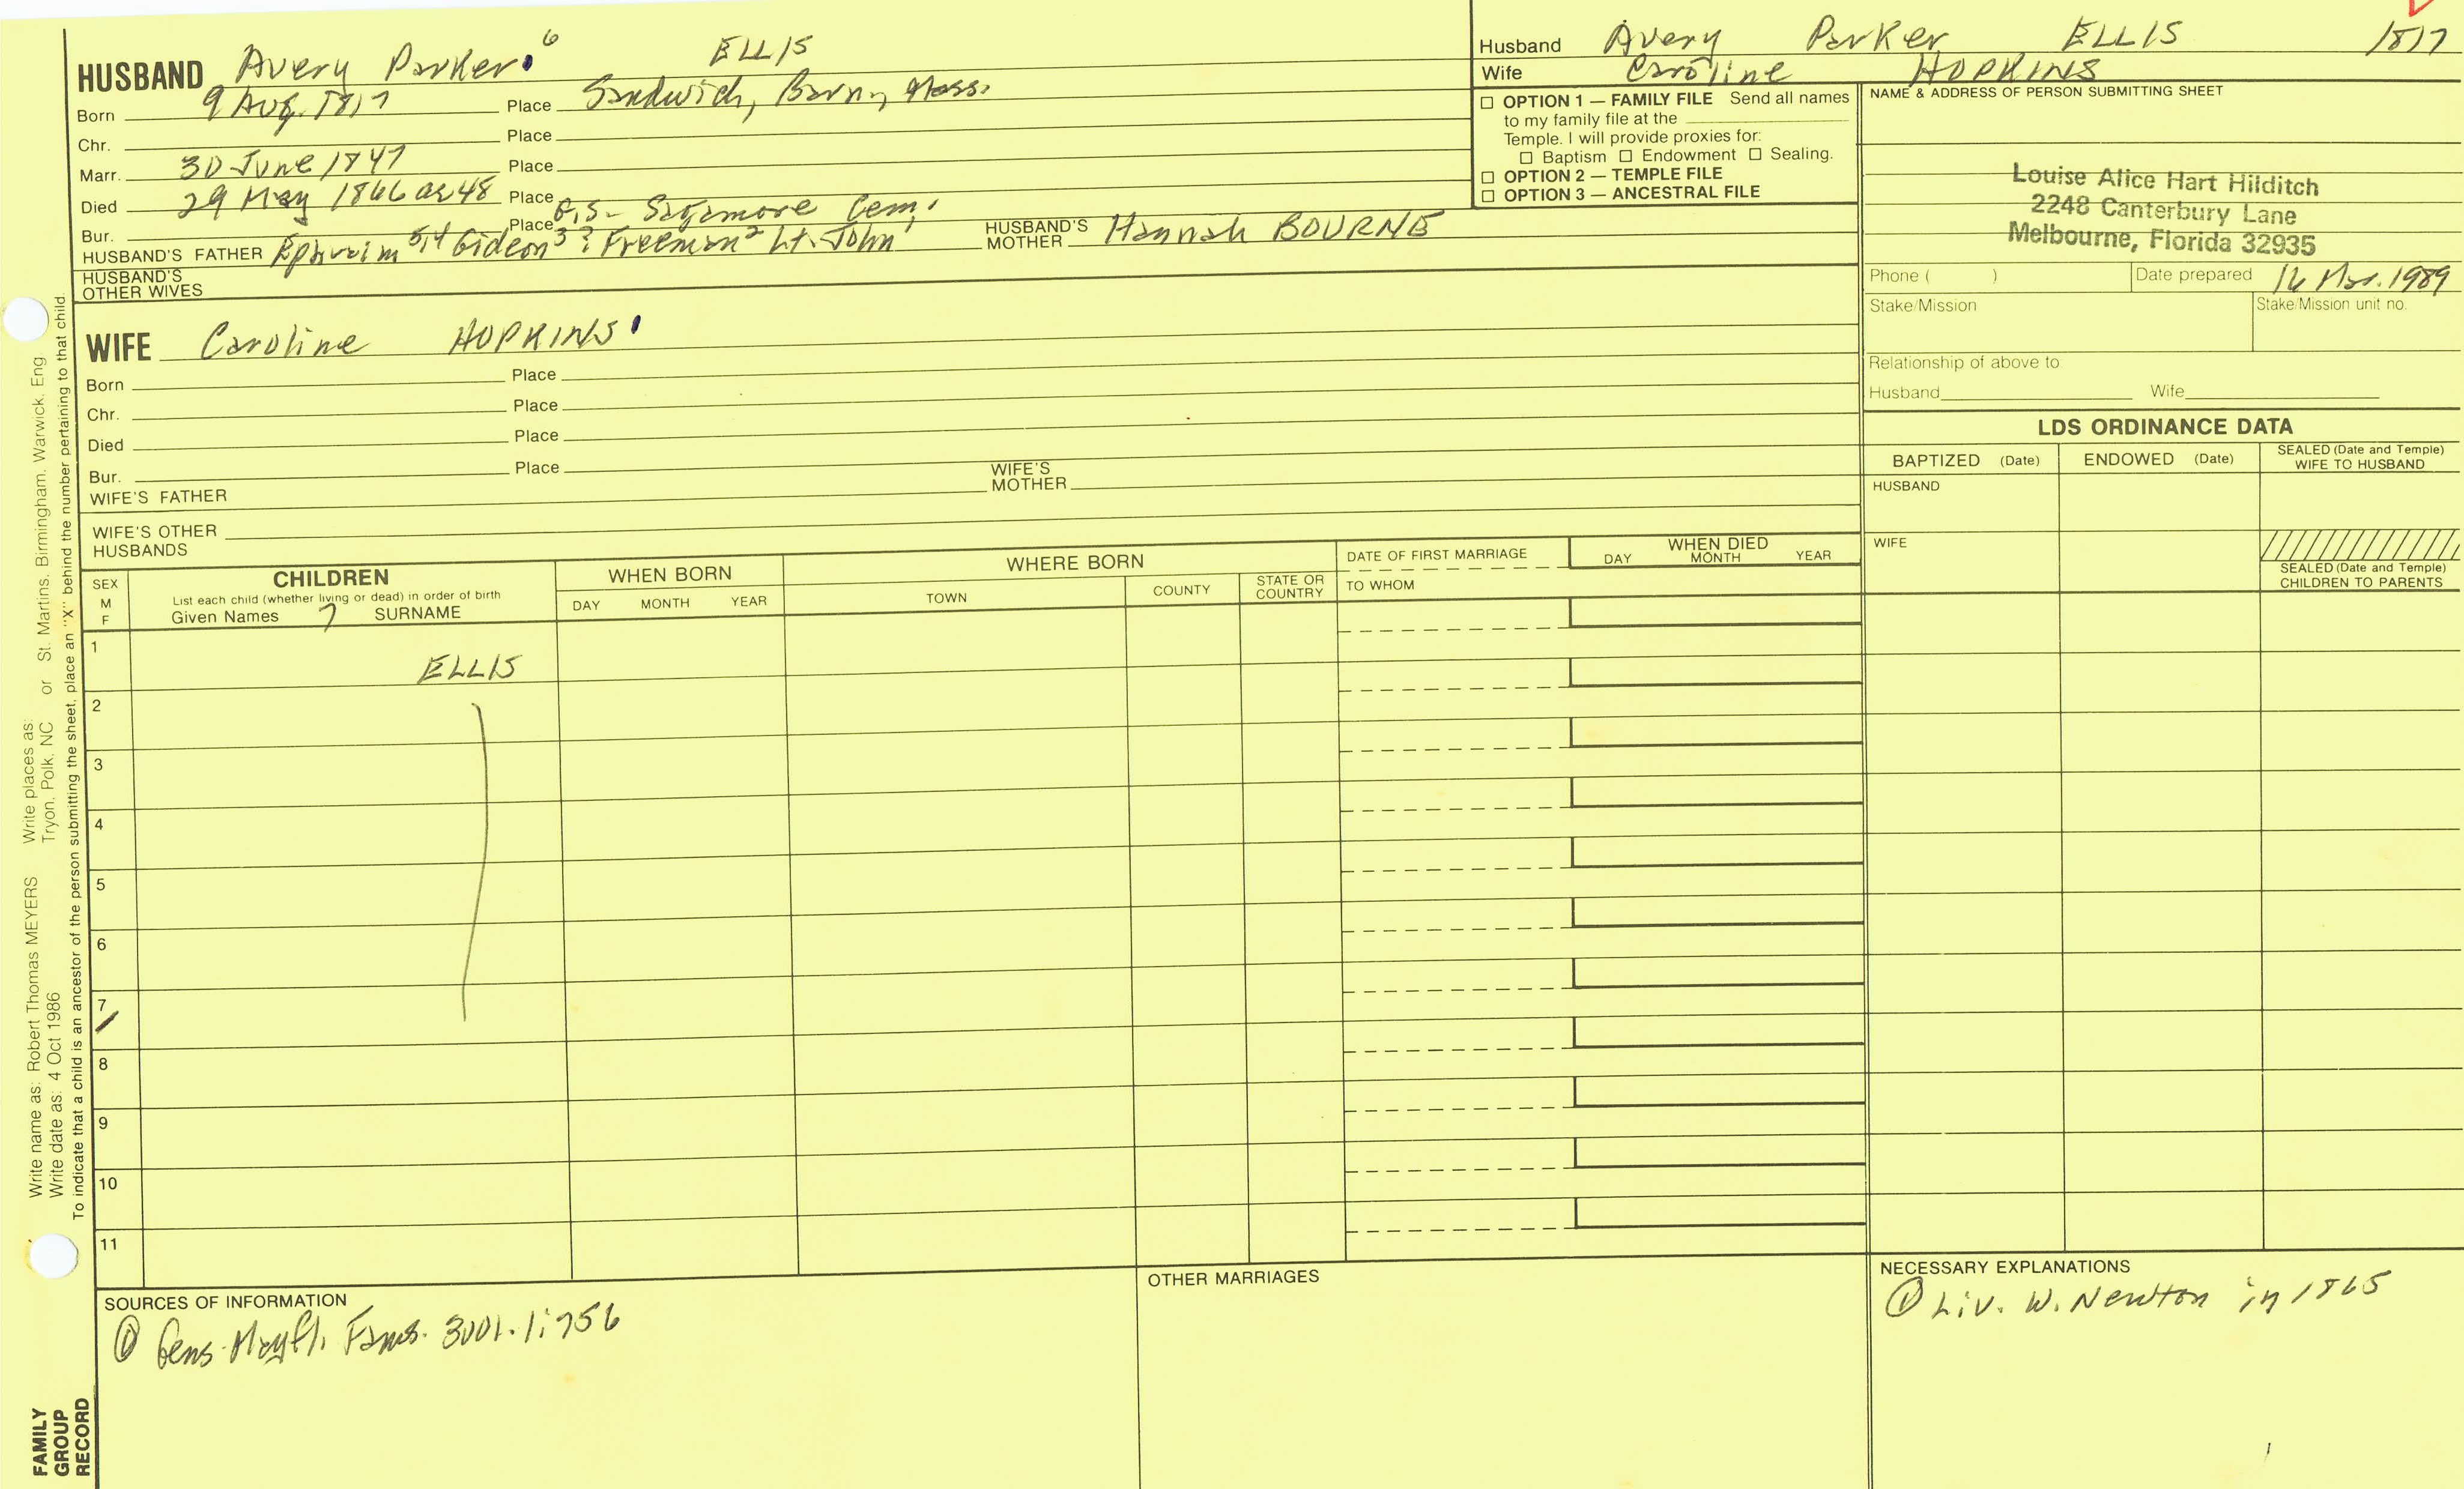 HUSBAND Avery Parker⁶ ELLIS
Born 9 Aug. 1817 Place Sandwich, Barn, Mass.
Chr. Place
Marr. 30 June 1847 Place
Died 29 May 1866 ae 48 Place
Bur. Place G.S- Sagamore Cem.
HUSBAND'S FATHER Ephraim 5,4 Gideon³ ? Freeman² Lt. John¹ HUSBAND'S MOTHER Hannah BOURNE
HUSBAND'S OTHER WIVES
WIFE Caroline HOPKINS
Born Place
Chr. Place
Died Place
Bur. Place
WIFE'S FATHER WIFE'S MOTHER
WIFE'S OTHER HUSBANDS
Husband Avery Parker ELLIS 1817
Wife Caroline HOPKINS
☐ OPTION 1 — FAMILY FILE Send all names
to my family file at the
Temple. I will provide proxies for:
☐ Baptism ☐ Endowment ☐ Sealing.
☐ OPTION 2 — TEMPLE FILE
☐ OPTION 3 — ANCESTRAL FILE
NAME & ADDRESS OF PERSON SUBMITTING SHEET
Louise Alice Hart Hilditch
2248 Canterbury Lane
Melbourne, Florida 32935
Phone ( ) Date prepared 16 Mar. 1989
Stake/Mission Stake/Mission unit no.
Relationship of above to
Husband Wife
LDS ORDINANCE DATA
BAPTIZED (Date) ENDOWED (Date) SEALED (Date and Temple) WIFE TO HUSBAND
HUSBAND
WIFE
SEALED (Date and Temple)
CHILDREN TO PARENTS
SEX M F
CHILDREN
List each child (whether living or dead) in order of birth
Given Names SURNAME
WHEN BORN
DAY MONTH YEAR
WHERE BORN
TOWN COUNTY STATE OR COUNTRY
DATE OF FIRST MARRIAGE
TO WHOM
WHEN DIED
DAY MONTH YEAR
1 ELLIS
2
3
4
5
6
7
8
9
10
11
SOURCES OF INFORMATION
① Gens. Mayfl. Fams. 3001.1:756
OTHER MARRIAGES
NECESSARY EXPLANATIONS
① Liv. W. Newton in 1865
Write name as: Robert Thomas MEYERS Write places as: Tryon, Polk, NC or St. Martins, Birmingham, Warwick, Eng
Write date as: 4 Oct 1986
To indicate that a child is an ancestor of the person submitting the sheet, place an "X" behind the number pertaining to that child.
FAMILY
GROUP
RECORD